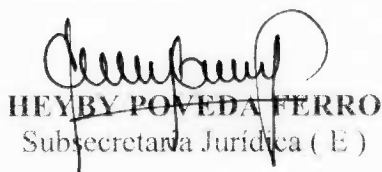 HEYBY POVEDA FERRO
Subsecretaria Jurídica ( E )